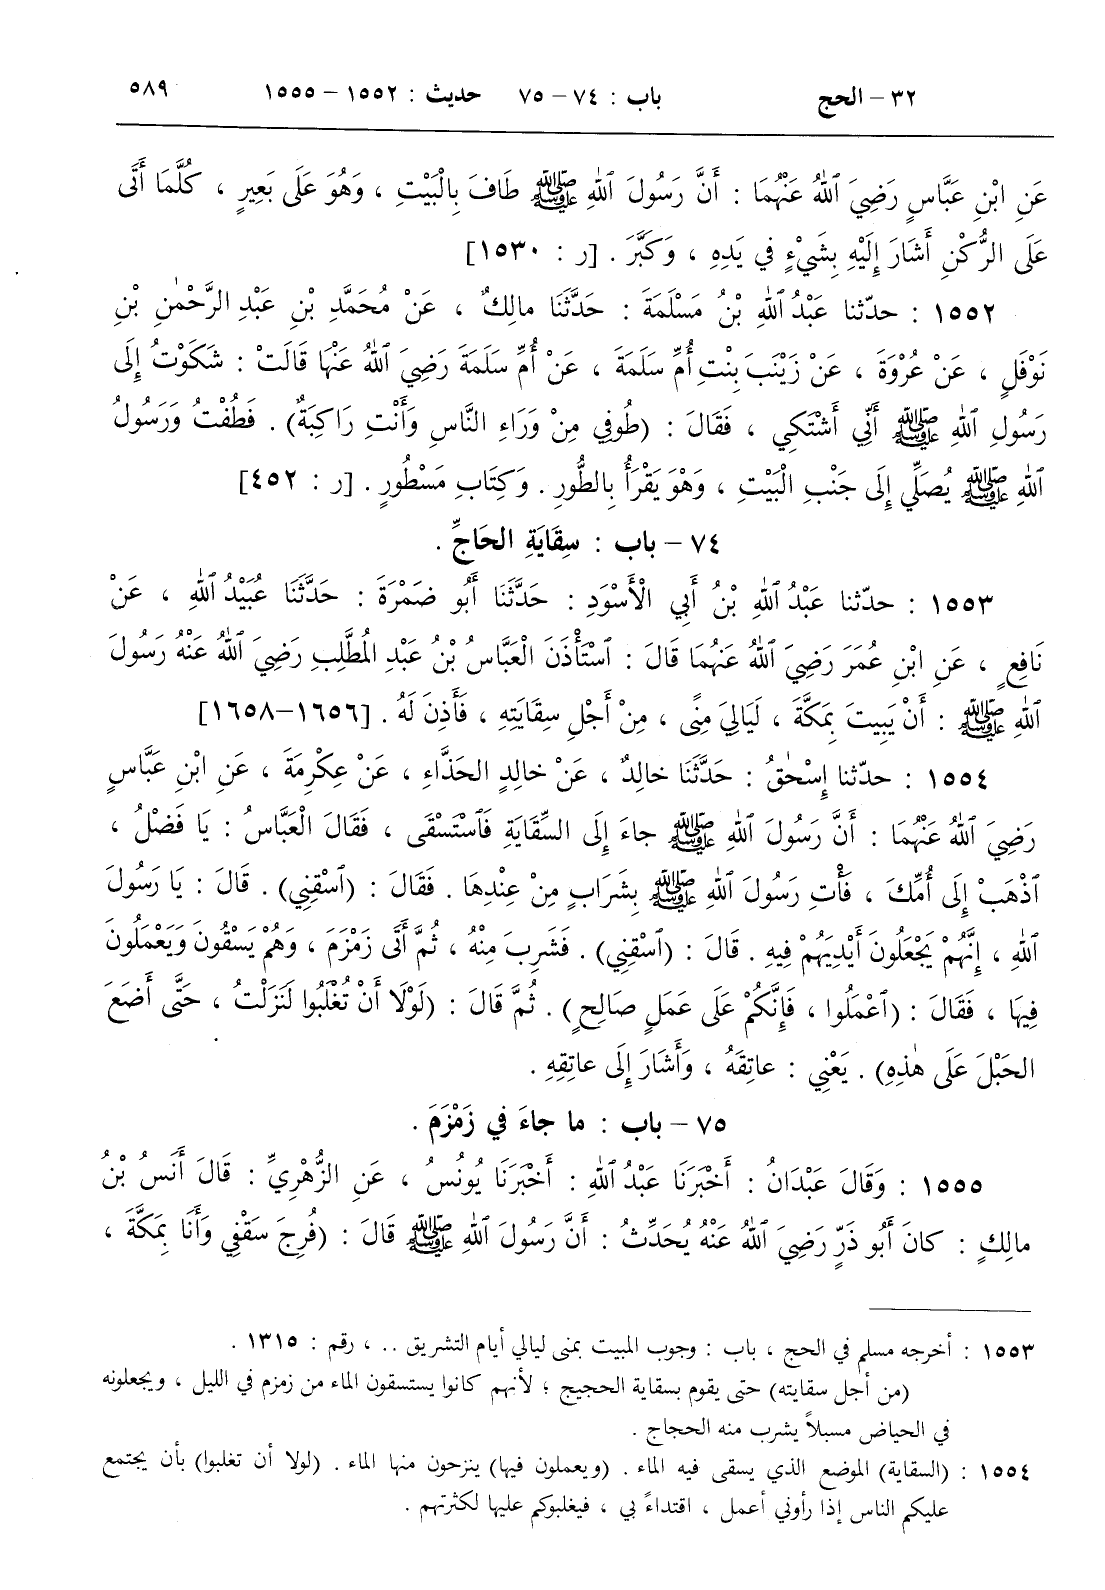 ٣٢ – الحج باب : ٧٤ – ٧٥ حديث : ١٥٥٢ – ١٥٥٥ ٥٨٩
عَنِ ابْنِ عَبَّاسٍ رَضِيَ ٱللهُ عَنْهُمَا : أَنَّ رَسُولَ ٱللهِ ﷺ طَافَ بِالْبَيْتِ ، وَهُوَ عَلَى بَعِيرٍ ، كُلَّمَا أَتَى
عَلَى الرُّكْنِ أَشَارَ إِلَيْهِ بِشَيْءٍ في يَدِهِ ، وَكَبَّرَ . [ر : ١٥٣٠]
١٥٥٢ : حدّثنا عَبْدُ ٱللهِ بْنُ مَسْلَمَةَ : حَدَّثَنَا مالِكٌ ، عَنْ مُحَمَّدِ بْنِ عَبْدِ الرَّحْمٰنِ بْنِ
نَوْفَلٍ ، عَنْ عُرْوَةَ ، عَنْ زَيْنَبَ بِنْتِ أُمِّ سَلَمَةَ ، عَنْ أُمِّ سَلَمَةَ رَضِيَ ٱللهُ عَنْهَا قالَتْ : شَكَوْتُ إِلَى
رَسُولِ ٱللهِ ﷺ أَنِّي أَشْتَكِي ، فَقَالَ : (طُوفِي مِنْ وَرَاءِ النَّاسِ وَأَنْتِ رَاكِبَةٌ) . فَطُفْتُ وَرَسُولُ
ٱللهِ ﷺ يُصَلِّي إِلَى جَنْبِ الْبَيْتِ ، وَهْوَ يَقْرَأُ بِالطُّورِ . وَكِتَابٍ مَسْطُورٍ . [ر : ٤٥٢]
٧٤ – باب : سِقَايَةِ الحَاجِّ .
١٥٥٣ : حدّثنا عَبْدُ ٱللهِ بْنُ أَبِي الْأَسْوَدِ : حَدَّثَنَا أَبُو ضَمْرَةَ : حَدَّثَنَا عُبَيْدُ ٱللهِ ، عَنْ
نَافِعٍ ، عَنِ ابْنِ عُمَرَ رَضِيَ ٱللهُ عَنْهُمَا قَالَ : ٱسْتَأْذَنَ الْعَبَّاسُ بْنُ عَبْدِ المُطَّلِبِ رَضِيَ ٱللهُ عَنْهُ رَسُولَ
ٱللهِ ﷺ : أَنْ يَبِيتَ بِمَكَّةَ ، لَيَالِيَ مِنًى ، مِنْ أَجْلِ سِقَايَتِهِ ، فَأَذِنَ لَهُ . [١٦٥٦–١٦٥٨]
١٥٥٤ : حدّثنا إِسْحٰقُ : حَدَّثَنَا خالِدٌ ، عَنْ خالِدٍ الحَذَّاءِ ، عَنْ عِكْرِمَةَ ، عَنِ ابْنِ عَبَّاسٍ
رَضِيَ ٱللهُ عَنْهُمَا : أَنَّ رَسُولَ ٱللهِ ﷺ جاءَ إِلَى السِّقَايَةِ فَٱسْتَسْقَى ، فَقَالَ الْعَبَّاسُ : يَا فَضْلُ ،
ٱذْهَبْ إِلَى أُمِّكَ ، فَأْتِ رَسُولَ ٱللهِ ﷺ بِشَرَابٍ مِنْ عِنْدِهَا . فَقَالَ : (ٱسْقِنِي) . قَالَ : يَا رَسُولَ
ٱللهِ ، إِنَّهُمْ يَجْعَلُونَ أَيْدِيَهُمْ فِيهِ . قَالَ : (ٱسْقِنِي) . فَشَرِبَ مِنْهُ ، ثُمَّ أَتَى زَمْزَمَ ، وَهُمْ يَسْقُونَ وَيَعْمَلُونَ
فِيهَا ، فَقَالَ : (ٱعْمَلُوا ، فَإِنَّكُمْ عَلَى عَمَلٍ صَالِحٍ) . ثُمَّ قَالَ : (لَوْلَا أَنْ تُغْلَبُوا لَنَزَلْتُ ، حَتَّى أَضَعَ
الحَبْلَ عَلَى هٰذِهِ) . يَعْنِي : عاتِقَهُ ، وَأَشَارَ إِلَى عاتِقِهِ .
٧٥ – باب : ما جاءَ في زَمْزَمَ .
١٥٥٥ : وَقالَ عَبْدَانُ : أَخْبَرَنَا عَبْدُ ٱللهِ : أَخْبَرَنَا يُونُسُ ، عَنِ الزُّهْرِيِّ : قَالَ أَنَسُ بْنُ
مالِكٍ : كانَ أَبُو ذَرٍّ رَضِيَ ٱللهُ عَنْهُ يُحَدِّثُ : أَنَّ رَسُولَ ٱللهِ ﷺ قَالَ : (فُرِجَ سَقْفِي وَأَنَا بِمَكَّةَ ،
١٥٥٣ : أخرجه مسلم في الحج ، باب : وجوب المبيت بمنى ليالي أيام التشريق .. ، رقم : ١٣١٥ .
(من أجل سقايته) حتى يقوم بسقاية الحجيج ؛ لأنهم كانوا يستسقون الماء من زمزم في الليل ، ويجعلونه
في الحياض مسبلاً يشرب منه الحجاج .
١٥٥٤ : (السقاية) الموضع الذي يسقى فيه الماء . (ويعملون فيها) ينزحون منها الماء . (لولا أن تغلبوا) بأن يجتمع
عليكم الناس إذا رأوني أعمل ، اقتداءً بي ، فيغلبوكم عليها لكثرتهم .